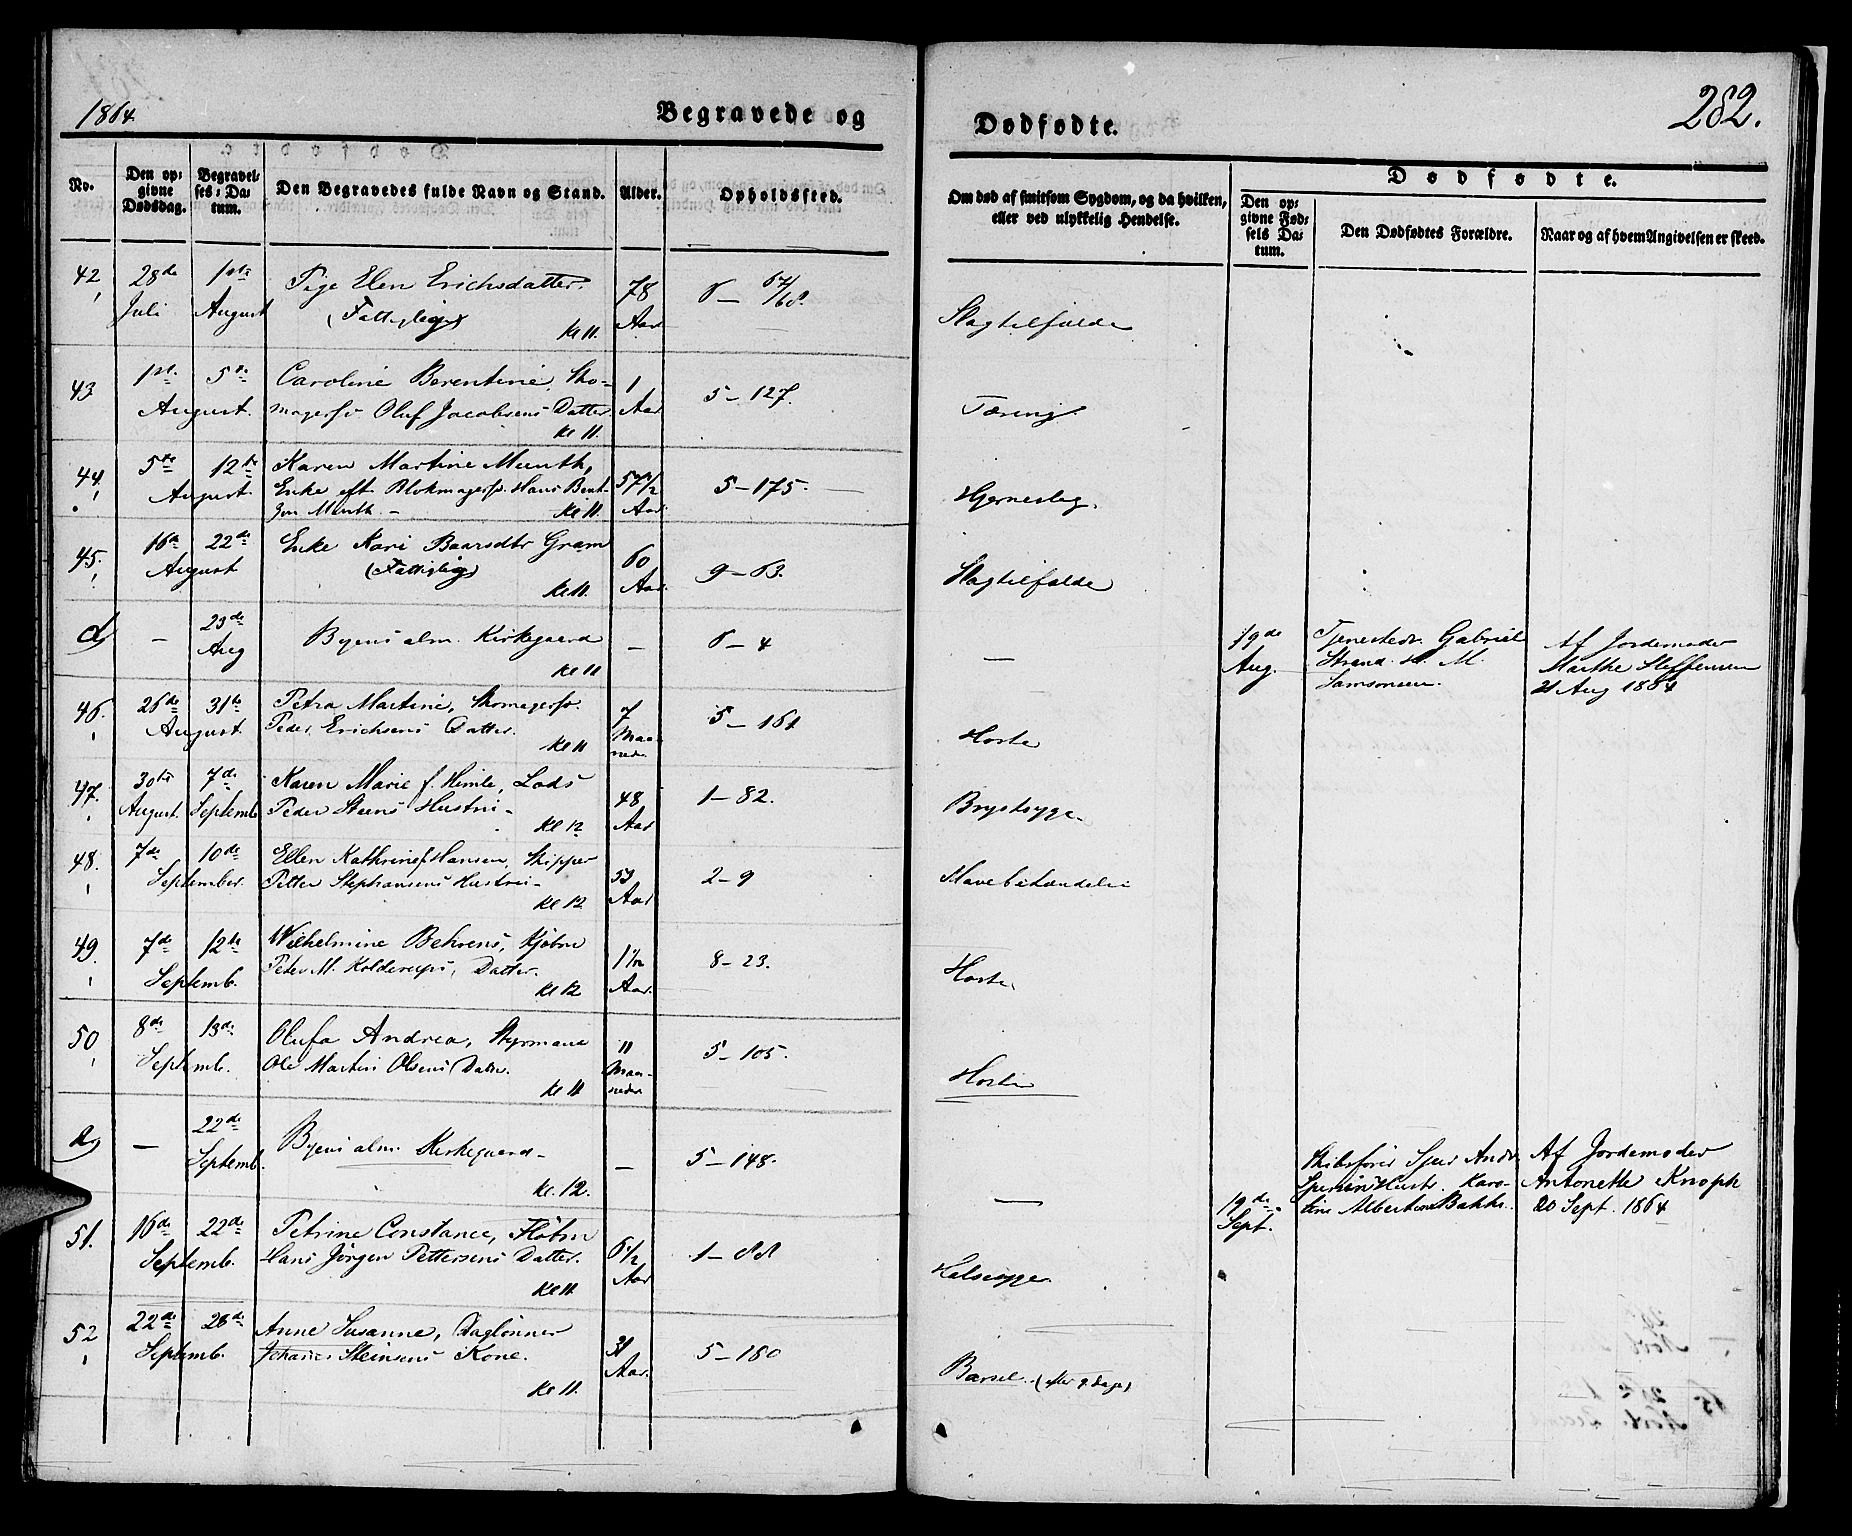 1864.
Begravede og
Dødfødte.
282.
No.
Den op-
givne
Dødsdag.
Begravel-
ses-Da-
tum.
Den Begravedes fulde Navn og Stand.
Alder.
Opholdssted.
Om død af smitsom Sygdom, og da hvilken,
eller ved ulykkelig Hendelse.
Dødfødte.
Den op-
givne Fød-
sels Da-
tum.
Den Dødfødtes Forældre.
Naar og af hvem Angivelsen er skeed.
42 28de 1ste Pige Elen Erichsdatter. 78 8 – 67/68.
Juli August (Fattiglig) Kl 11. Aar Slagtilfælde
43 1ste 5te Caroline Berentine, Sko- 1 5 – 127.
August. magersv. Oluf Jacobsens Datter Aar Tæring
Kl 11.
44. 5te 12te Karen Martine Munth, 57 1/2 5 – 175. –
August. Enke eft. Blokmagersv. Hans Bent- Hjerneslag.
zon Munth. – Kl 11. Aar
45. 16de 22de Enke Kari Baarsdtr Gram 60 9 – 63.
August (Fattiglig) Slagtilfælde
Kl 11. Aar
– 23de Byens alm. Kirkegaard – 8 – 4 –
Aug Kl 11
19de Tjenestedr. Gabriel Af Jordemoder
Aug. Strand M. Marthe Steffensen
Samsonsen. 21 Aug 1864
46. 26de 31te Petra Martine, Skomagersv. 7 5 – 161
August Peder Erichsens Datter. Maa- Hoste
Kl 11 neder
47. 30te 7de Karen Marie f. Himle, Lods 48 1 – 82.
August. Septemb. Peder Steens Hustru – Brystsyge.
Kl 12 Aar
48. 7de 10de Ellen Kathrine f Hansen, Skipper 53 2 – 9
September. Petter Stephansens Hustru – Mavebetændelse
Kl 12. Aar
49. 7de 12te Wilhelmine Behrens, Kjøbm 8 – 23.
Septemb. Peter M. Kolderups, Datter. Hoste.
Kl 12 Aar.
50 8de 13de Olufa Andrea, Styrmand 11 5 – 105.
Septemb. Ole Martin Olsens Datter. Maa- Hoste
Kl 11 neder
– 22de Byens alm. Kirkegaard – – 5 – 148. –
Septemb. Kl. 12.
19de Skibsfører Sjur Andr. Af Jordemoder
Sept. Hustr. Karo- Antonette Knoph
line Albertine Bakke. 20 Sept. 1864
51. 16de 22de Petrine Constance, Fløtm 6 1/2 1 – 88
Septemb. Hans Jørgen Pettersens Datter. Aar Halssyge.
Kl 11.
52 22de 28de Anne Susanne, Daglønner 31 5 – 180
Septemb. Johannes Steinsens Kone. Aar. Barsel. (efter 9 Dage)
Kl 11.